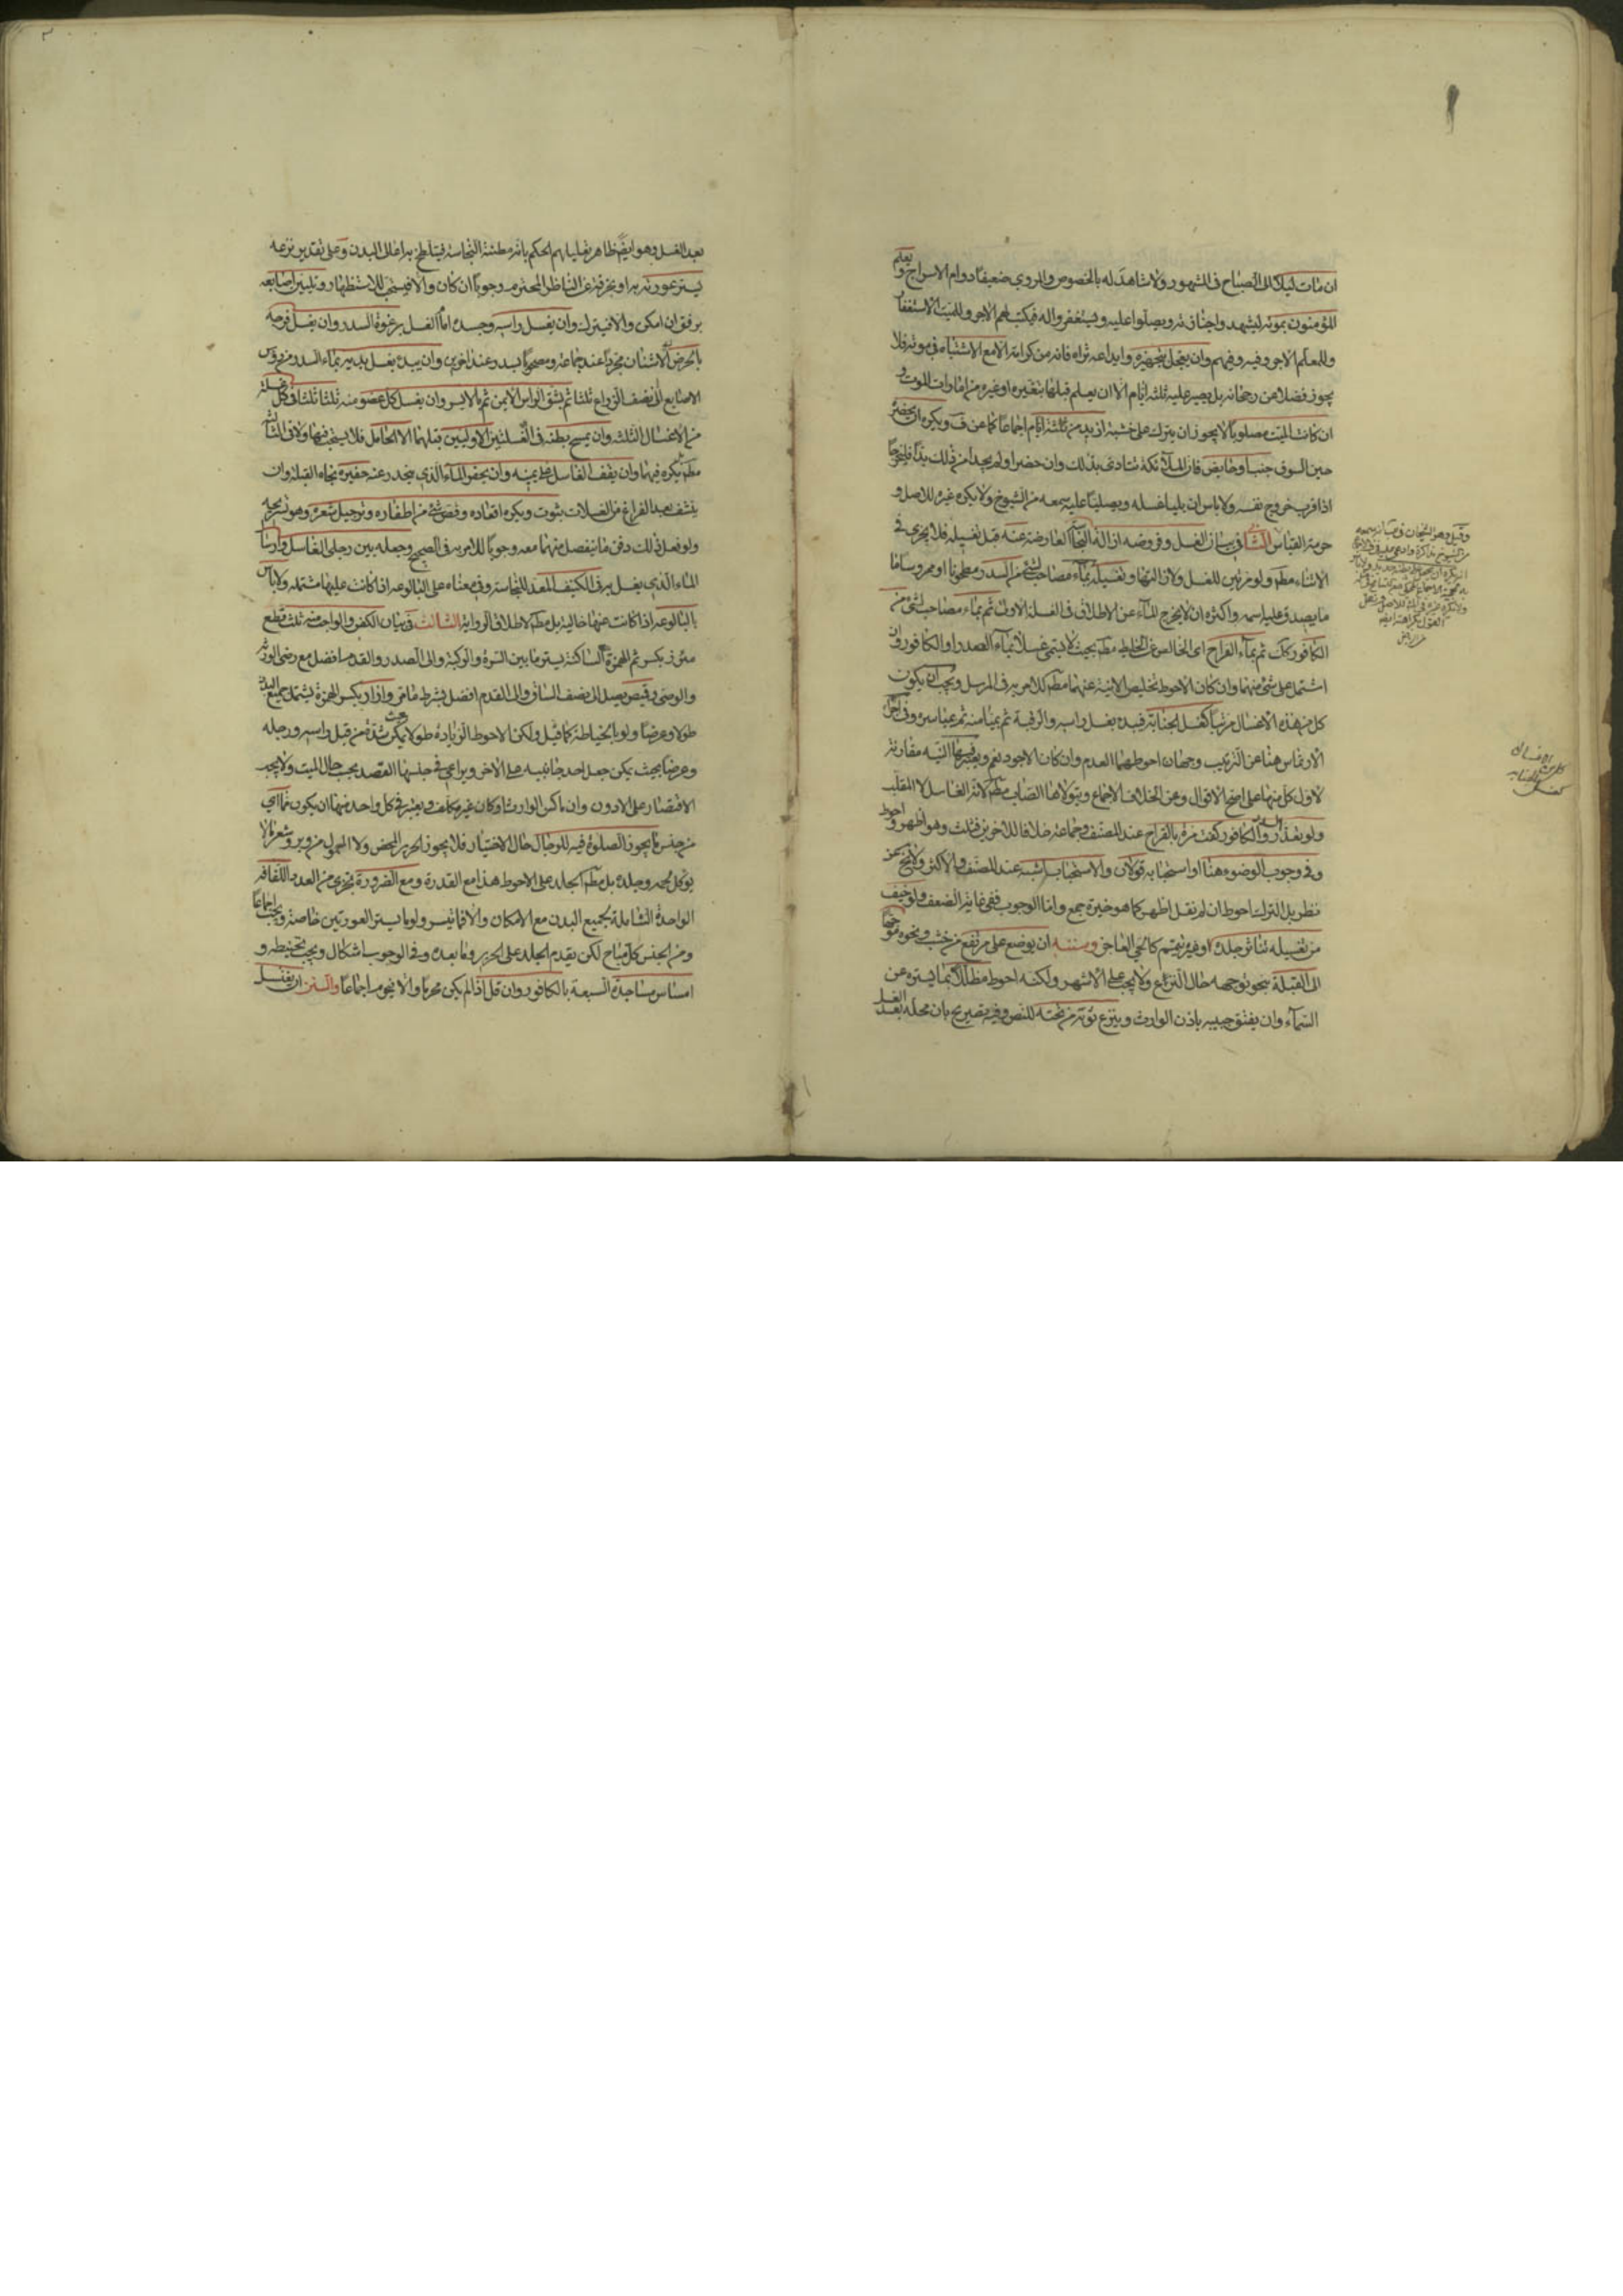 ان مات ليلا الى الصباح في المشهور ولا شاهد له بالخصوص والمروي ضعيفا دوام الاسراج ويعلم
المؤمنون بموته ليشهدوا جنازته ويصلوا عليه ويستغفروا له فيكتب لهم الاجر وللميت الاستغفار
وللمعلم الاجر وفيه وفيهم وان يعجل بتجهيزه وايداعه ثراه فانه من كرامته الا مع الاشتباه في موته فلا
يجوز فضلا عن رجحانه بل يصبر عليه ثلثه ايام الا ان يعلم قبلها بتغيره او غيره من امارات الموت و
ان كان الميت مصلوبا لا يجوز ان يترك على خشبة ازيد من ثلثة ايام اجماعا كما عن ف ويكره ان يحضره
حين السوق جنب او حايض فان الملائكة تتاذى بذلك وان حضرا ولم يجدا من ذلك بدا فليخرجا
اذا قرب خروج نفسه ولا باس ان يليا غسله ويصليا عليه سمعه من الشيوخ ولا يكره غيره للاصل و
حرمة القياس الثاني في بيان الغسل وفروضه ازالة النجاسة العارضة عنه قبل تغسيله فلا يجزي في
الاثناء مطم ولو مرتين للغسل ولازالتها وتغسيله بماء مصاحب لشئ من السدر ومطحونا او ممروسا ما
ما يصدق عليه اسمه واكثره ان لا يخرج الماء عن الاطلاق في الغسلة الاولى ثم بماء مصاحب لشئ من
الكافور كك ثم بماء القراح اى الخالص عن الخليط مطم بحيث لا يسمى غسلا بماء السدر او الكافور وان
اشتمل على شئ منهما وان كان الاحوط تخليص الانية عنهما مطم كالامر به في المرسل ويجب ان يكون
كل من هذه الاغسال مرتبا كغسل الجنابة فيبدء بغسل راسه والرقبة ثم بميامنه ثم مياسره وفي اجزاء
الارتماس هنا عن الترتيب وجهان احوطهما العدم وان كان الاجود نعم ويعتبر فيها النية مقارنة
لاول كل منها على اصح الاقوال وعن الخلاف الاجماع ويتولاها الصاب مطم لانه الغاسل لا المقلب
ولو تعذر السدر والكافور كفت مرة بالقراح عند المصنف وجماعة خلافا للاخرين فثلث وهو اظهر واحوط
وفي وجوب الوضوء هنا او استحبابه قولان والاستحباب اشبه عند المصنف والاكثر ولا يخ عن
نظر بل الترك احوط ان لم نقل اظهر كما هو خيرة جمع واما الوجوب ففي غاية الضعف ولو خيف
من تغسيله تناثر جلده او غيره ييمم كالحي العاجز وسننه ان يوضع على مرتفع من خشب ونحوه موجها
الى القبلة بنحو توجهه حال النزع ولا يجب على الاشهر ولكنه احوط مظللا بما يستره عن
السماء وان يفتق جيبه باذن الوارث وينزع ثوبه من تحته للنص وفيه تصريح بان محله بعد الغسل
الاغسال
كل من هذه
كغسل الجنابة
بعد الغسل وهو ايضا ظاهر تعليلهم الحكم بانه مظنة النجاسة فيتلطخ بها اعالى البدن وعلى تقدير نزعه
يستر عورته به او بخرقة عن الناظر المحترم وجوبا ان كان والا فيستحب للاستظهار وتليين اصابعه
برفق ان امكن والا فيترك وان يغسل راسه وجسده امام الغسل برغوة السدر وان يغسل فرجه
بالحرض الاشنان مجردا عند جماعة ومصحوبا بسدر عند اخرين وان يبدء بغسل يديه بماء السدر من رؤس
الاصابع الى نصف الذراع ثلثا ثم بشق الراس الايمن ثم بالايسر وان يغسل كل عضو منه ثلثا ثلثا في كل غسلة
من الاغسال الثلثه وان يمسح بطنه في الغسلتين الاوليين قبلهما الا الحامل فلا يستحب فيها ولا في الثالثة
مطم بل يكره فيها وان يقف الغاسل على يمينه وان يحفر للماء الذي ينحدر عنه حفيرة تجاه القبلة وان
ينشف بعد الفراغ من الغسلات بثوب ويكره اقعاده وقص شئ من اظفاره وترجيل شعره وهو تسريحه
ولو فعل ذلك دفن ما ينفصل منهما معه وجوبا للامر به في الصحيح وجعله بين رجلي الغاسل وارسال
الماء الذي يغسل به في الكنيف المعد للنجاسة وفي معناه على البالوعه اذا كانت عليها مشتمله ولا باس
بالبالوعه اذا كانت عنها خالية بل مطم لاطلاق الرواية الثالث في بيان الكفن والواجب منه ثلث قطع
مئزر بكسر ثم الهمزة الساكنة يستر ما بين السرة والركبة والى الصدر والقدم افضل مع رضى الورثة
والوصى وقميص يصل الى نصف الساق والى القدم افضل بشرط ما مر وازار بكسر الهمزة يشمل جميع البدن
طولا وعرضا ولو بالخياطة كما قيل ولكن الاحوط الزيادة طولا بحيث يمكن شده من قبل راسه ورجله
وعرضا بحيث يمكن جعل احد جانبيه على الاخر ويراعى في جنسها القصد بحسب حال الميت ولا يجب
الاقتصار على الادون وان ماكس الوارث او كان غير مكلف ويعتبر في كل واحد منها ان يكون مما اي
من جنس ما يجوز الصلوة فيه للرجال حال الاختيار فلا يجوز الحرير المحض ولا المعمول من وبر وشعر ما لا
يؤكل لحمه وجلده بل مطم الجلد على الاحوط هذا مع القدرة ومع الضرورة يجزي من العدد اللفافة
الواحدة الشاملة لجميع البدن مع الامكان والا فما تيسر ولو ما يستر العورتين خاصة ويجب اجماعا
ومن الجنس كل مباح لكن يقدم الجلد على الحرير وما بعده وفي الوجوب اشكال ويجب تحنيطه و
امساس مساجده السبعة بالكافور وان قل اذا لم يكن محرما والا فيحرم اجماعا والسنن ان يغتسل